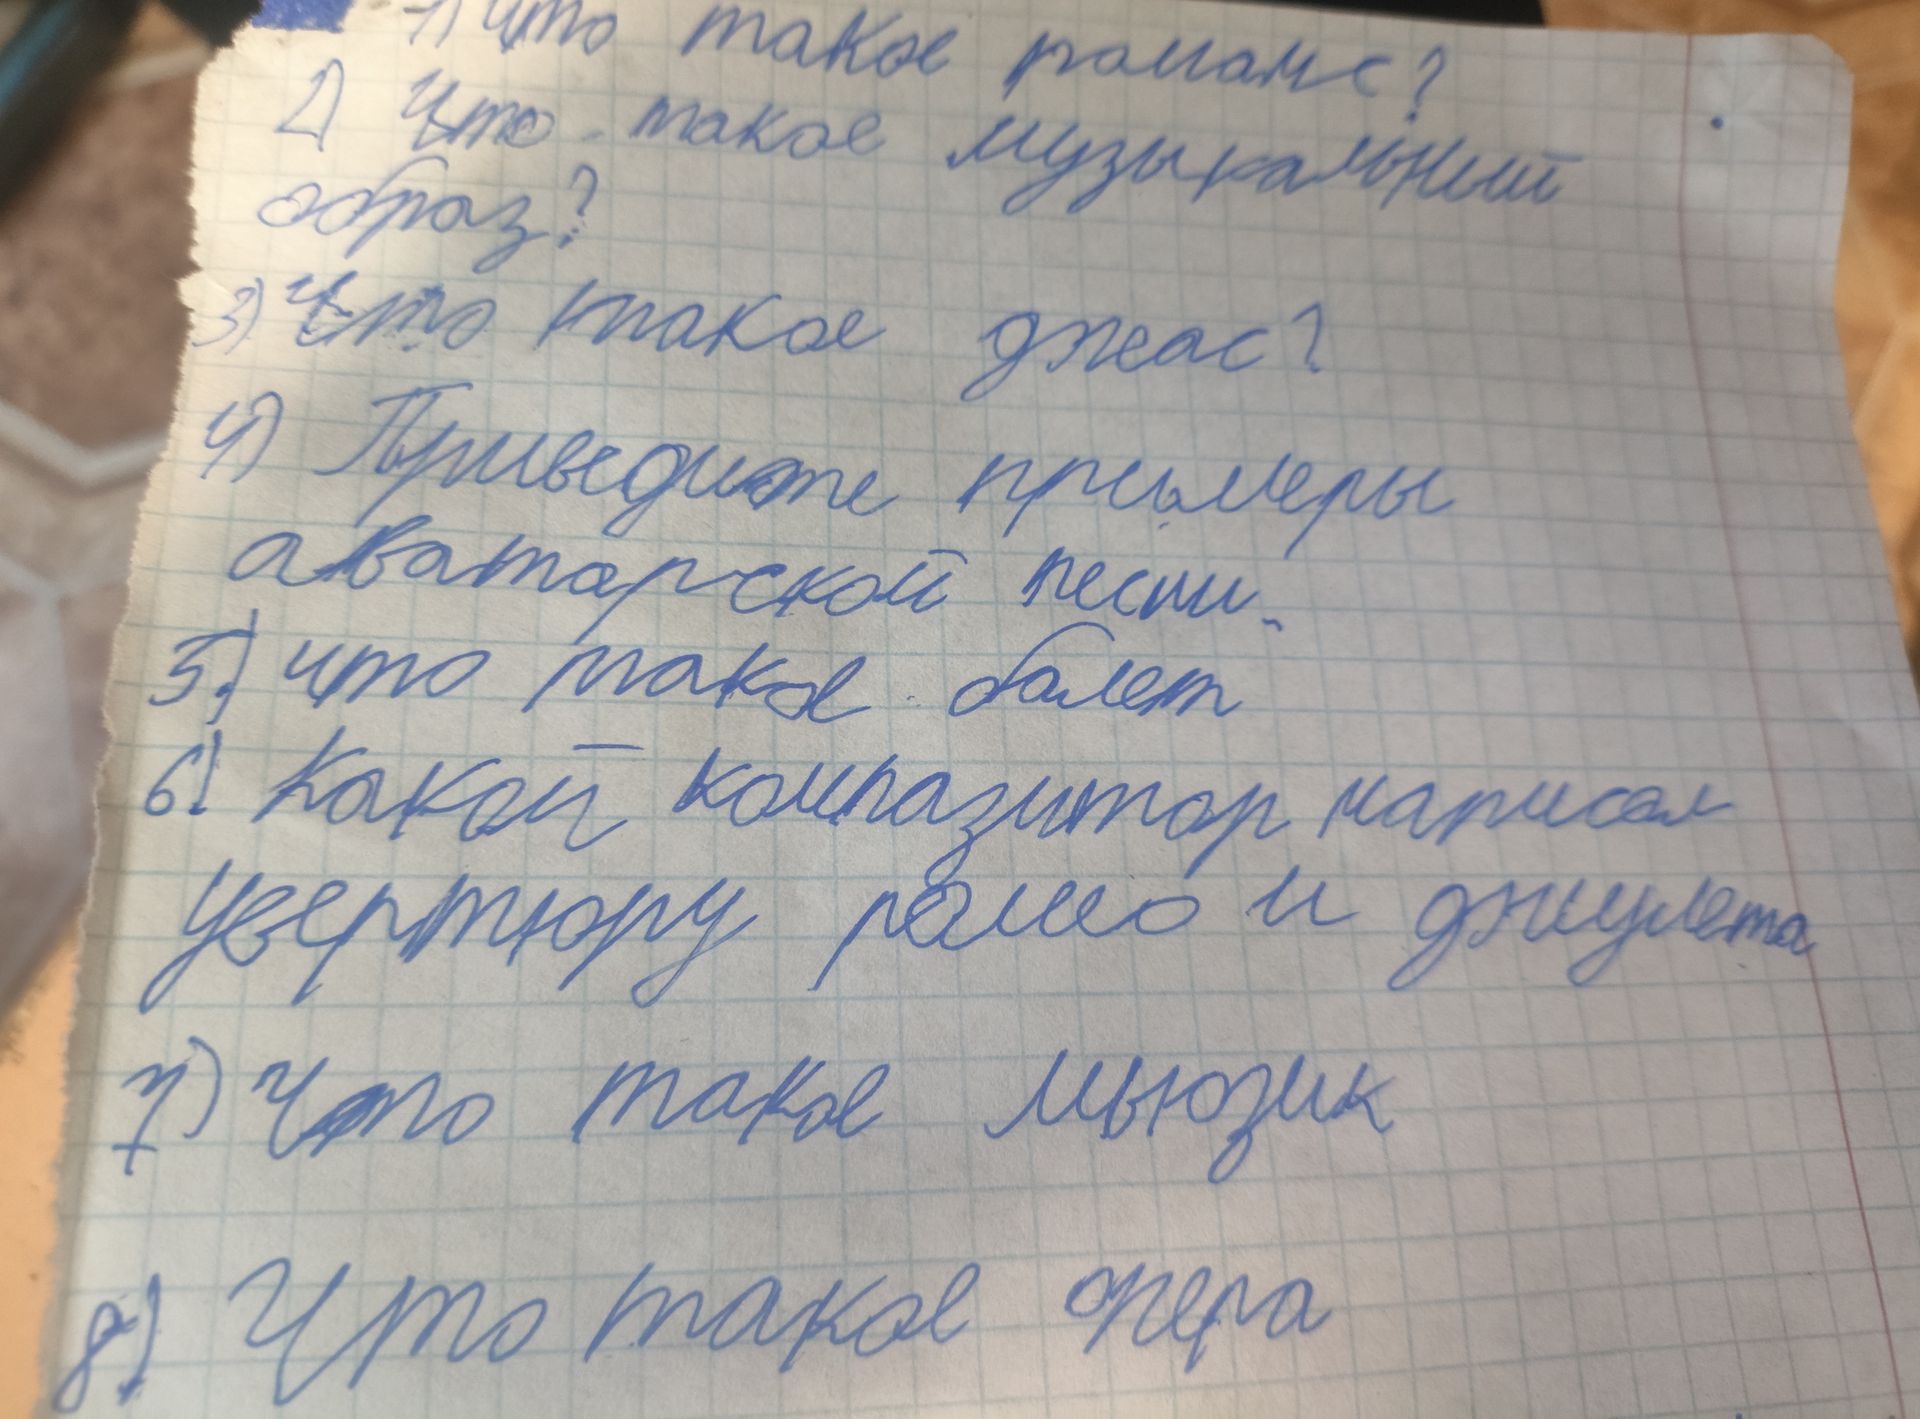 1) Что такое романс?
2) Что такое музыкальный
образ?
3) Что такое джас?
4) Приведите примеры
аваторской песни.
5) что такое балет
6) Какой компазитор написал
увертюру ромео и джулета
7) Что такое мьюзик
8) Что такое опера